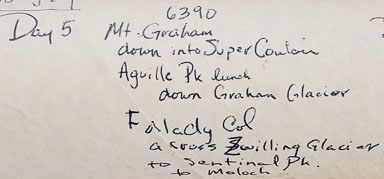 6390
Day 5 Mt. Graham
down into Super Couloir
Aguille Pk lunch
down Graham Glacier
Falady Col
across Zwilling Glacier
to Sentinal Pk.
to Moloch